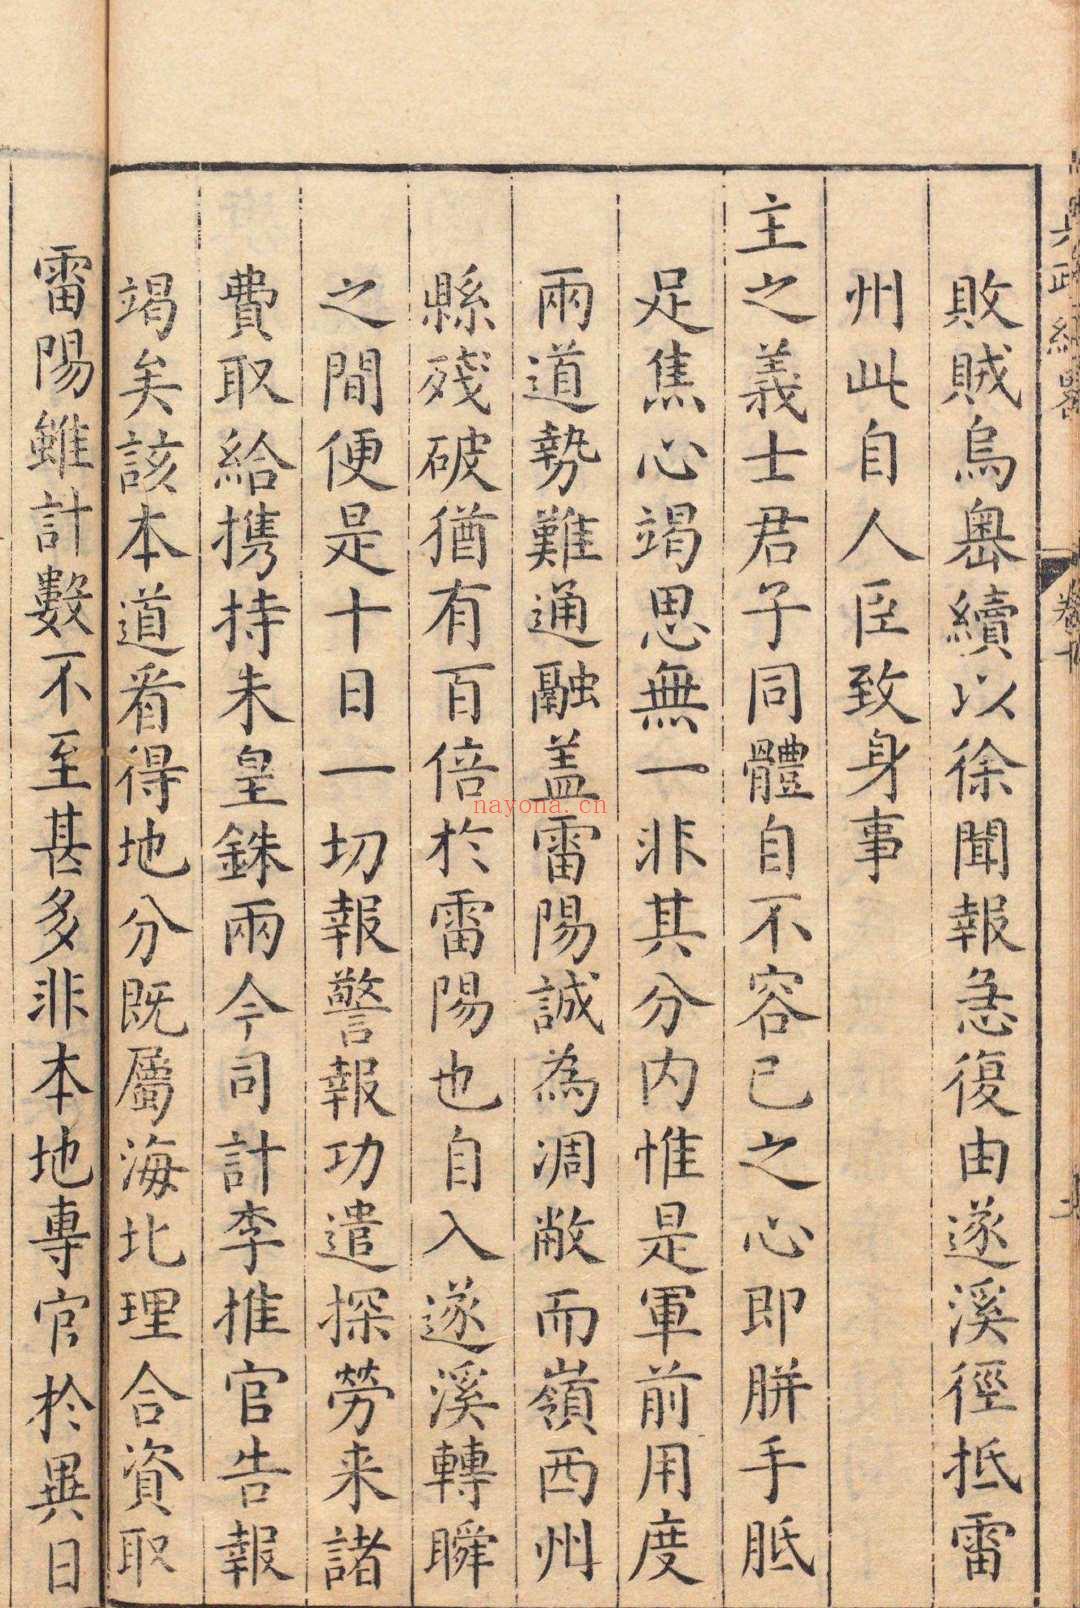 敗賊烏嶴續以徐聞報急復由遂溪徑抵雷
州此自人臣致身事
主之義士君子同體自不容已之心即胼手胝
足焦心竭思無一非其分内惟是軍前用度
兩道勢難通融盖雷陽誠為凋敝而嶺西州
縣殘破猶有百倍於雷陽也自入遂溪轉瞬
之間便是十日一切報警報功遣探勞来諸
費取給携持未皇銖兩今司計李推官告報
竭矣該本道看得地分既屬海北理合資取
雷陽雖計數不至甚多非本地專官於異日
nayona.cn